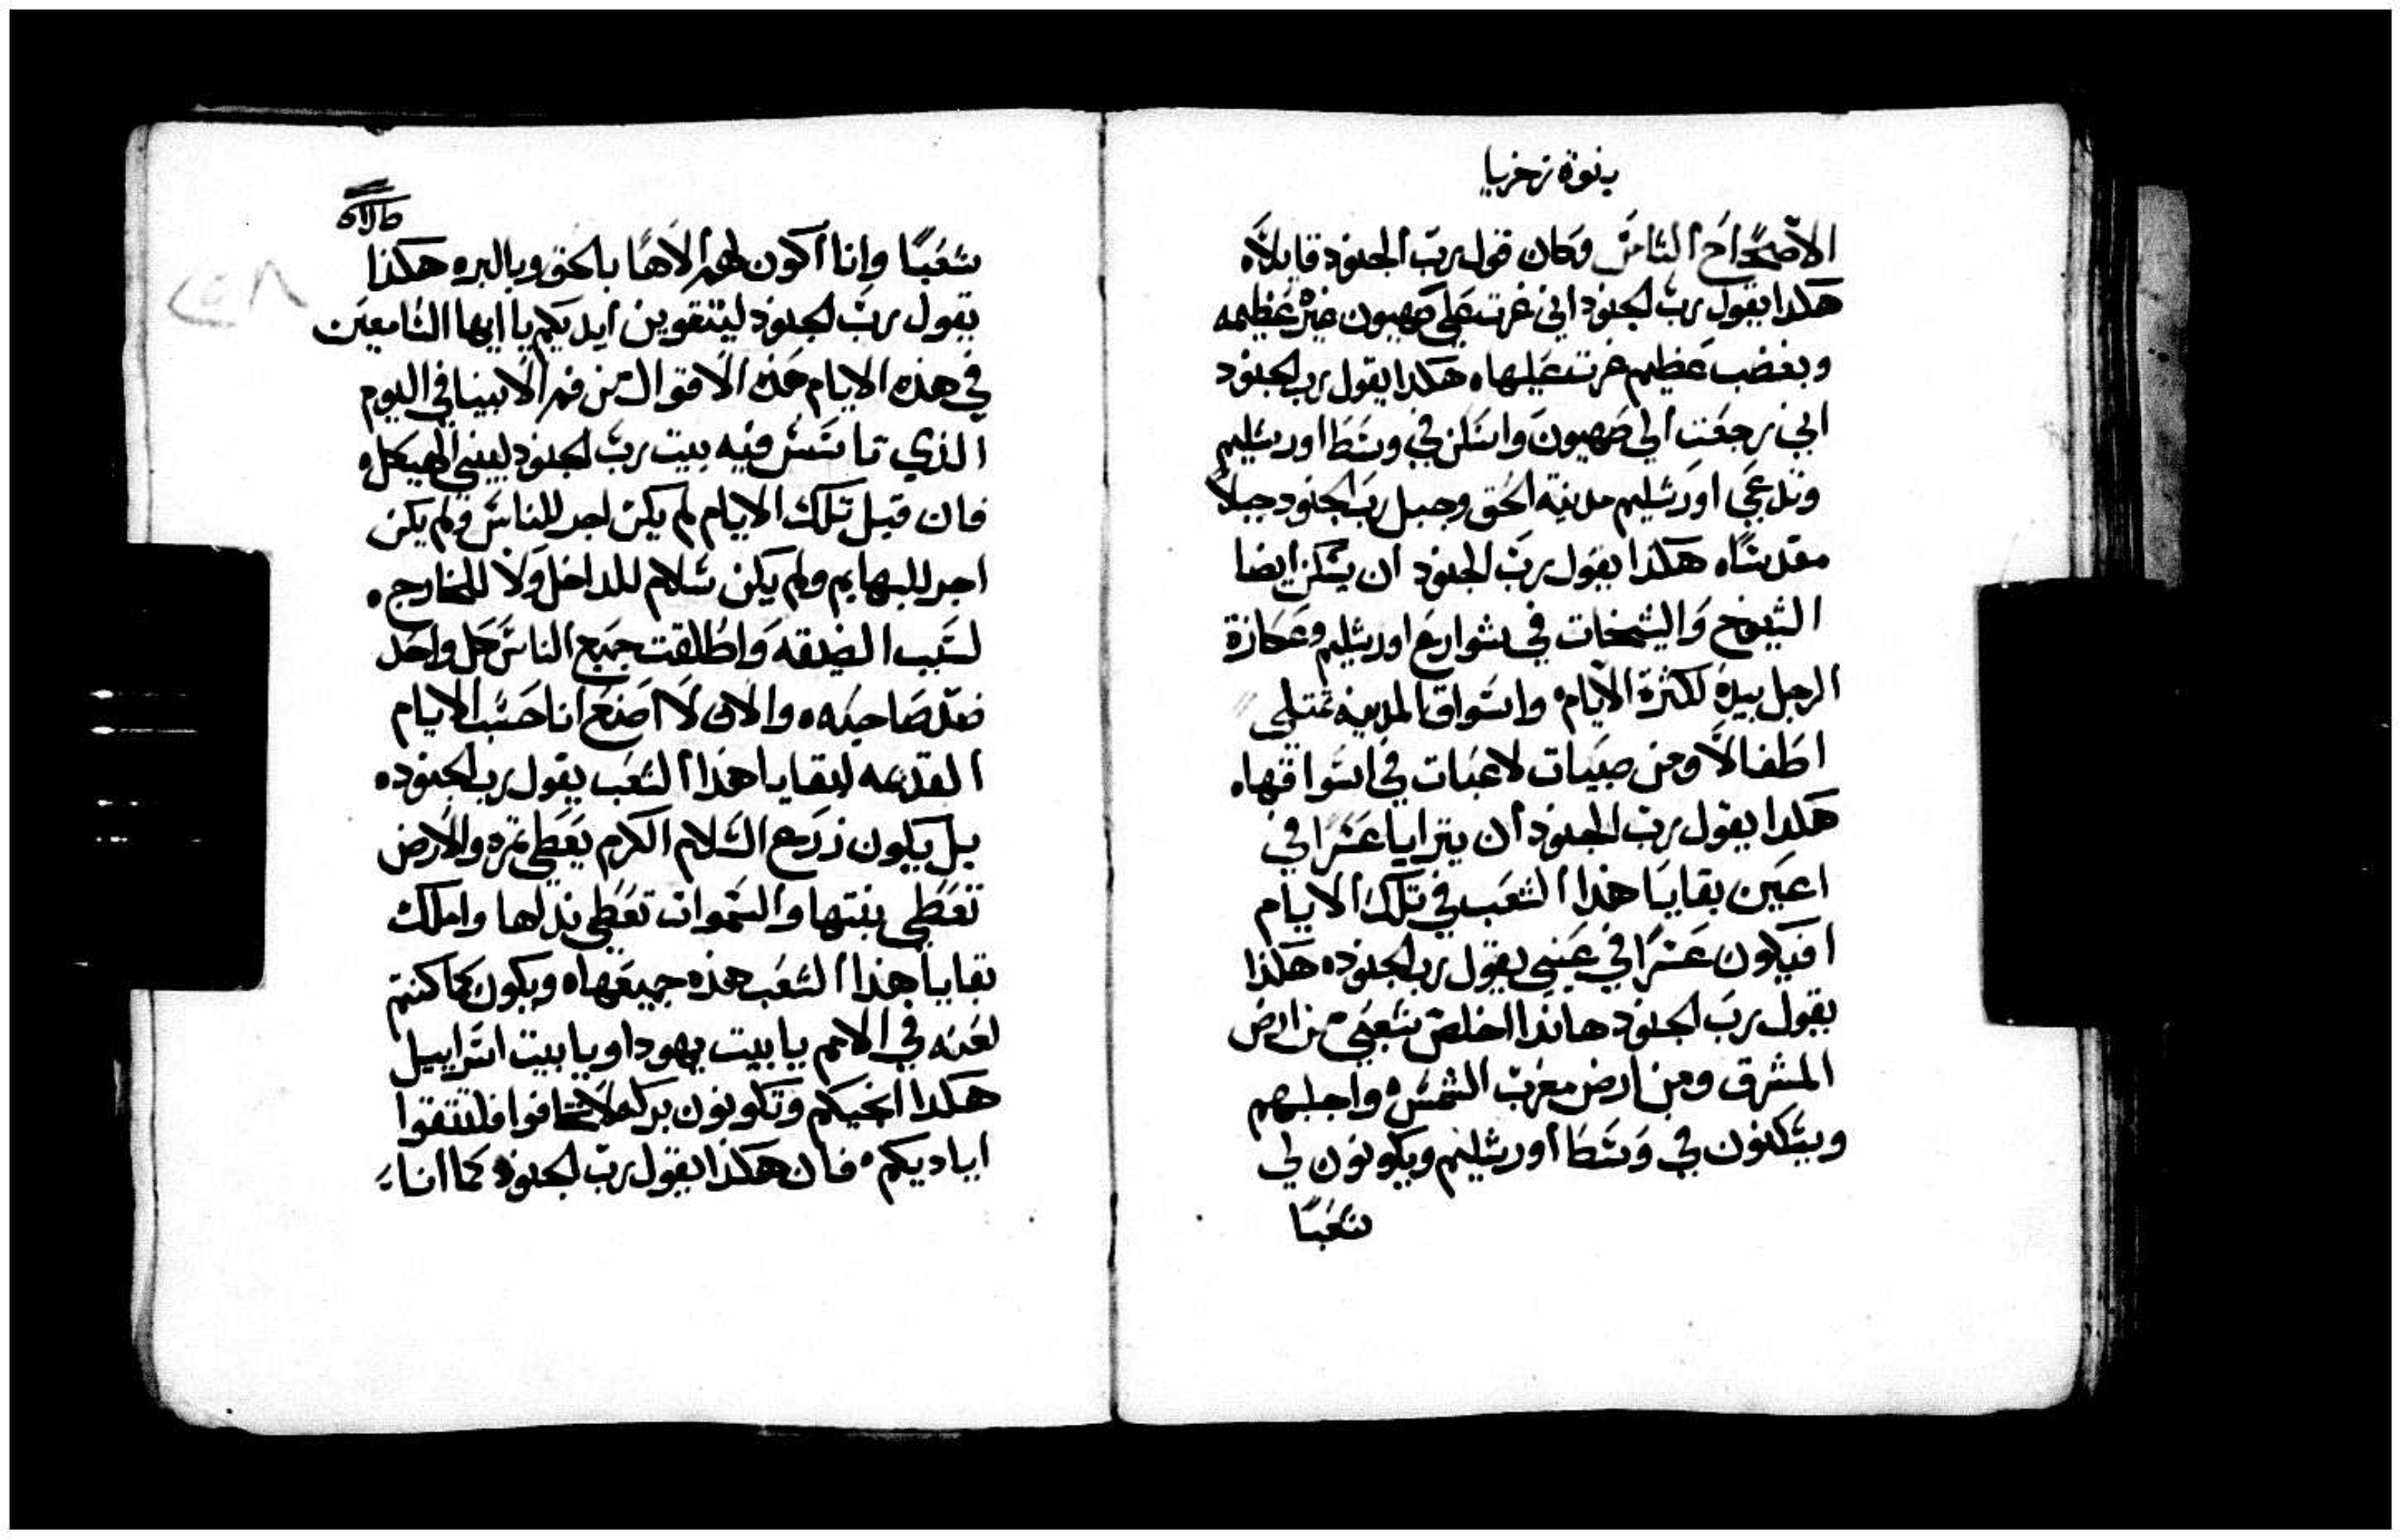 بنوة زخريا
الاصحاح الثامن وكان قول رب الجنود قايلاه
هكدا يقول رب الجنود اني غرت على صهيون غيره عظيمه
وبغضب عظيم غرت عليهاه هكدا يقول رب الجنود
اني رجعت الي صهيون واسكن في وسط اورشليم
وتدعى اورشليم مدينة الحق وجبل رب الجنود جبلاً
مقدساه هكذا يقول رب الجنود ان يسكن ايضا
الشيوخ والشيخات في شوارع اورشليم وعكازة
الرجل بيده لكثرة الايام واسواق المدينه تمتلي
اطفالاً ومن صبيات لاعبات في اسواقهاه
هكدا يقول رب الجنود ان يترايا عسرا في
اعين بقايا هذا الشعب في تلك الايام
افيكون عسرا في عيني يقول رب الجنوده هكذا
يقول رب الجنود هانذا اخلص شعبي من ارض
المشرق ومن ارض مغرب الشمس واجلبهم
ويسكنون في وسط اورشليم ويكونون لي
شعبًا
شعبًا وانا اكون لهم الاهًا بالحق وبالبره هكذا
يقول رب الجنود لينتقوين ايديكم يا ايها السامعين
في هذه الايام هذه الاقوال من فم الانبيا في اليوم
الذي تاسس فيه بيت رب الجنود ليبني الهيكله
فان قبل تلك الايام لم يكن اجر للناس ولم يكن
اجر للبهايم ولم يكن سلام للداخل ولا للخارج.
لسبب الضيقه واطلقت جميع الناس كل واحد
ضد صاحبه ه والان لا اصنع انا حسب الايام
القديمه لبقايا هذا الشعب يقول رب الجنوده
بل يكون زرع السلام الكرم يعطي ثمره والارض
تعطي نبتها والسموات تعطي نداها واملك
بقايا هذا الشعب هذه جميعهاه ويكون كما كنتم
لعنه في الامم يا بيت يهودا ويا بيت اسراييل
هكدا انجيكم وتكونون بركه لا تخافوا فلتتقوا
اياديكم. فان هكذا يقول رب الجنود كما انا